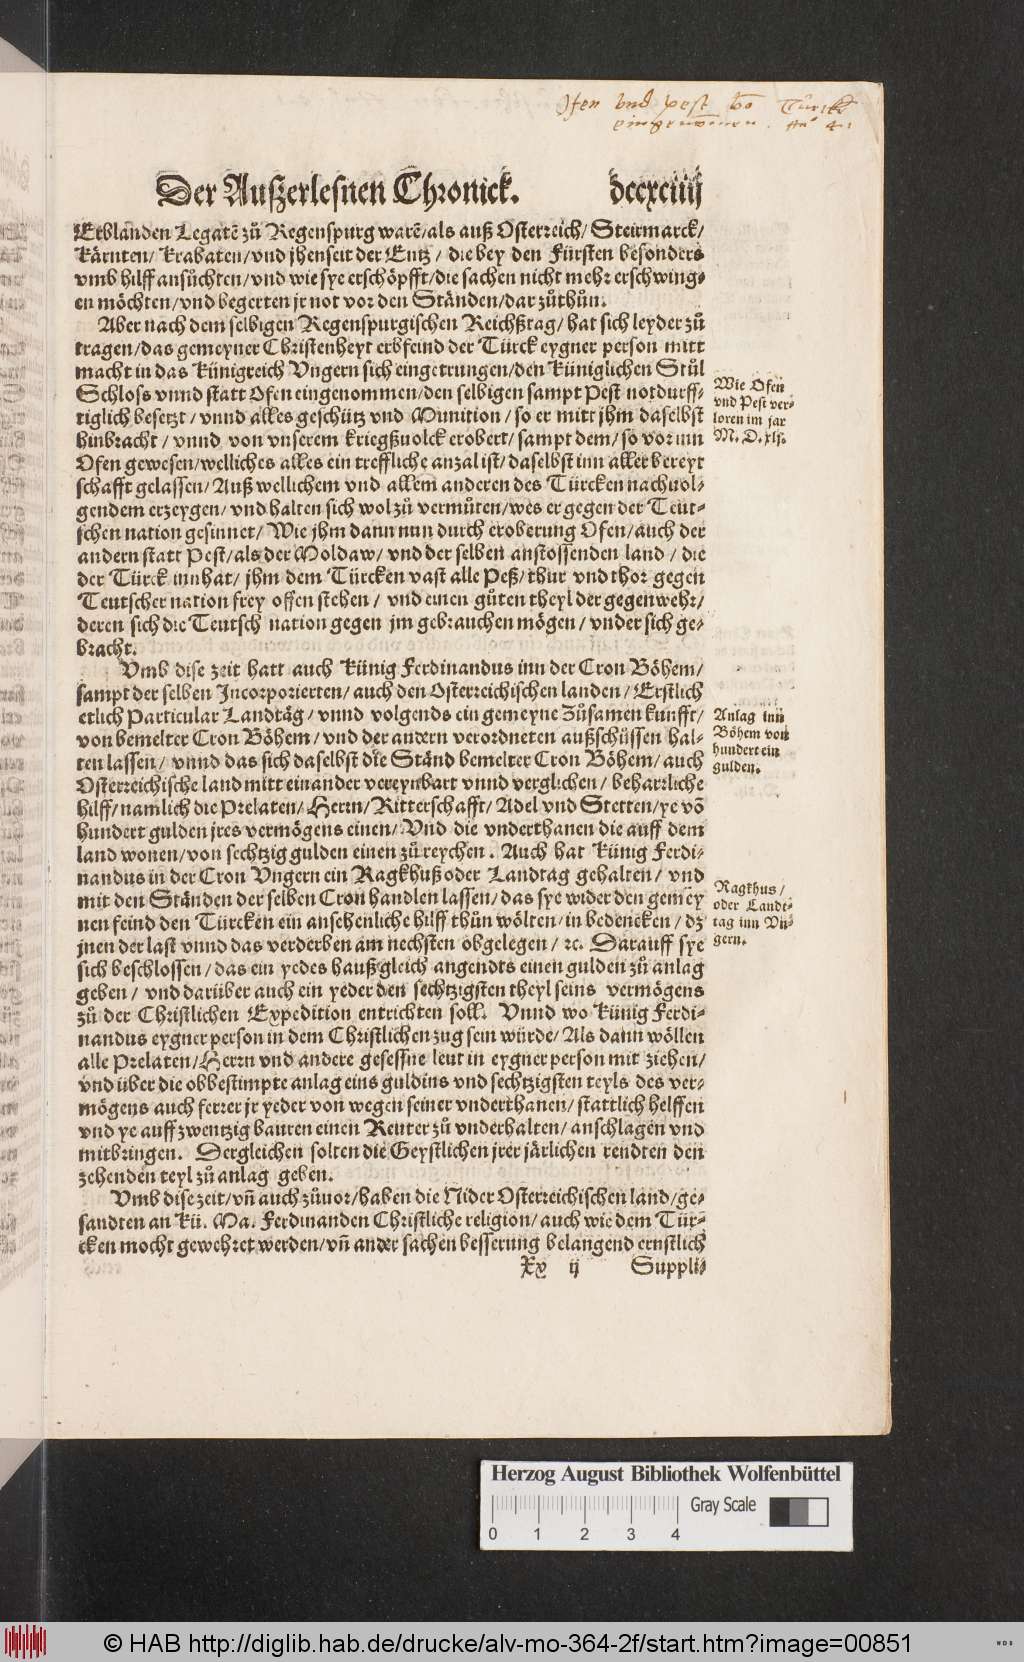 Ofen vnd pest vo Türck
eingenomen. Ao 41
Der Außerlesnen Chronick. dccxciiij
Erblanden Legatē zů Regenspurg warē/als auß Osterreich/Steirmarck/
Kärnten/Krabaten/vnd jhenseit der Entz/ die bey den Fürsten besonders
vmb hilff ansůchten/vnd wie sye erschöpfft/die sachen nicht mehr erschwing⸗
en möchten/vnd begerten jr not vor den Ständen/dar zůthůn.
Aber nach dem selbigen Regenspurgischen Reichßtag/hat sich leyder zů
tragen/das gemeyner Christenheyt erbfeind der Türck eygner person mitt
macht in das Künigreich Vngern sich eingetrungen/den Küniglichen Stůl
Schloss vnnd statt Ofen eingenommen/den selbigen sampt Pest notdurff⸗
tiglich besetzt/vnnd alles geschütz vnd Munition/so er mitt jhm daselbst
hinbracht/vnnd von vnserem kriegßuolck erobert/sampt dem/so vor inn
Ofen gewesen/welliches alles ein treffliche anzal ist/daselbst inn aller bereyt
schafft gelassen/Auß wellichem vnd allem anderen des Türcken nachuol⸗
gendem erzeygen/vnd halten sich wol zů vermůten/wes er gegen der Teut⸗
schen nation gesinnet/Wie jhm dann nun durch eroberung Ofen/auch der
andern statt Pest/als der Moldaw/vnd der selben anstossenden land/die
der Türck innhat/jhm dem Türcken vast alle Peß/thür vnd thor gegen
Teutscher nation frey offen stehen/vnd einen gůten theyl der gegenwehr/
deren sich die Teutsch nation gegen jm gebrauchen mögen/vnder sich ge⸗
bracht.
Vmb dise zeit hatt auch Künig Ferdinandus inn der Cron Böhem/
sampt der selben Incorporierten/auch den Osterreichischen landen/Erstlich
etlich Particular Landtäg/vnnd volgends ein gemeyne Zůsamen kunfft/
von bemelter Cron Böhem/vnd der andern verordneten außschüssen hal⸗
ten lassen/vnnd das sich daselbst die Ständ bemelter Cron Böhem/auch
Osterreichische land mitt einander vereynbart vnnd verglichen/beharrliche
hilff/namlich die Prelaten/Herrn/Ritterschafft/Adel vnd Stetten/ye vō
hundert gulden jres vermögens einen/Vnd die vnderthanen die auff dem
land wonen/von sechtzig gulden einen zů reychen. Auch hat Künig Ferdi⸗
nandus in der Cron Vngern ein Ragkhuß oder Landtag gehalten/vnd
mit den Ständen der selben Cron handlen lassen/das sye wider den gemey
nen feind den Türcken ein ansehenliche hilff thůn wölten/in bedencken/dz
jnen der last vnnd das verderben am nechsten obgelegen/ꝛc. Darauff sye
sich beschlossen/das ein yedes hauß gleich angendts einen gulden zů anlag
geben/vnd darüber auch ein yeder den sechtzigsten theyl seins vermögens
zů der Christlichen Expedition entrichten soll. Vnnd wo Künig Ferdi⸗
nandus eygner person in dem Christlichen zug sein würde/Als dann wöllen
alle Prelaten/Herrn vnd andere gesessne leut in eygner person mit ziehen/
vnd über die obbestimpte anlag eins guldins vnd sechtzigsten teyls des ver⸗
mögens auch ferrer jr yeder von wegen seiner vnderthanen/stattlich helffen
vnd ye auff zwentzig bauren einen Reuter zů vnderhalten/anschlagen vnd
mitbringen. Dergleichen solten die Geystlichen jrer järlichen rendten den
zehenden teyl zů anlag geben.
Vmb dise zeit/vn̄ auch zůuor/haben die Nider Osterreichischen land/ge⸗
sandten an Kü. Ma. Ferdinanden Christliche religion/auch wie dem Tür⸗
cken mocht gewehret werden/vn̄ ander sachen besserung belangend ernstlich
Xx ij Suppli⸗
Wie Ofen
vnd Pest ver⸗
loren im jar
M. D. xlj.
Anlag inn
Böhem von
hundert ein
gulden.
Ragkhus/
oder Landt⸗
tag inn Vn⸗
gern.
Herzog August Bibliothek Wolfenbüttel
Gray Scale
0 1 2 3 4
© HAB http://diglib.hab.de/drucke/alv-mo-364-2f/start.htm?image=00851